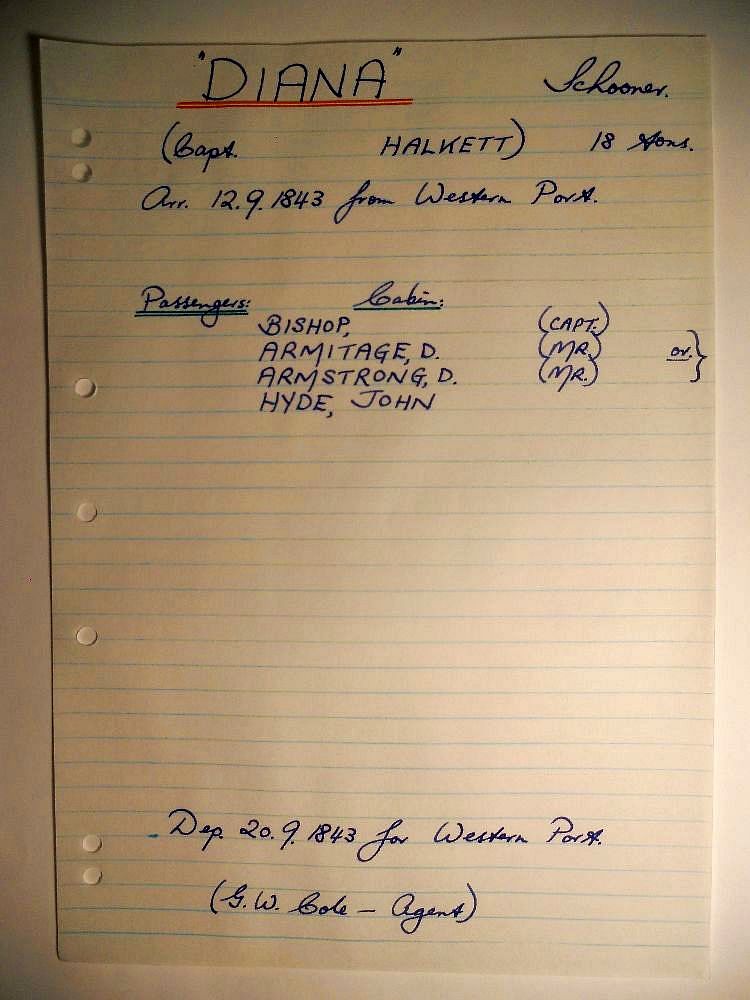 "DIANA" Schooner.
(Capt. HALKETT) 18 tons.
Arr. 12.9.1843 from Western Port.
Passengers: Cabin:
BISHOP, (CAPT.)
ARMITAGE, D. (MR.) or }
ARMSTRONG, D. (MR.)
HYDE, JOHN
Dep. 20.9.1843 for Western Port.
(G.W. Cole - Agent)